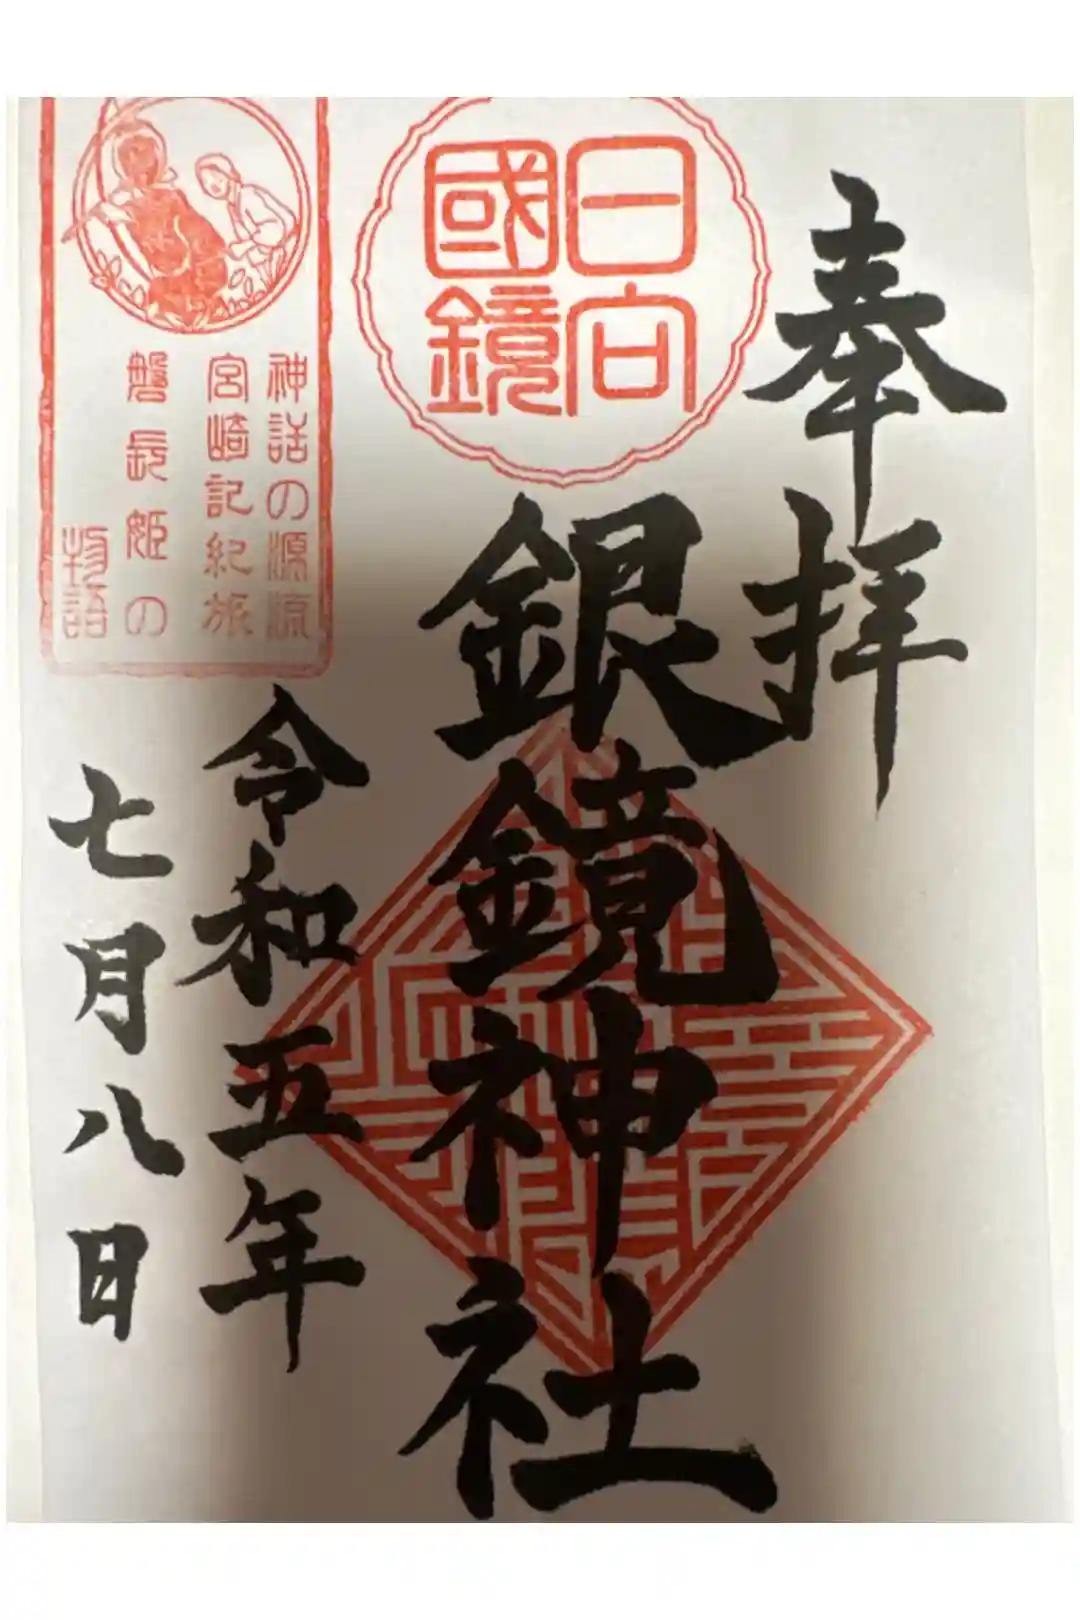 奉拝
日向
國鏡
銀鏡神社
神話の源流
宮崎記紀旅
磐長姫の
物語
令和五年
七月八日